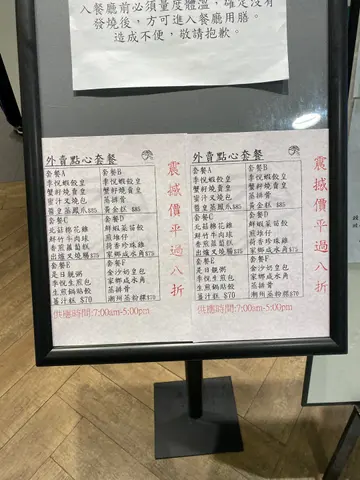 入餐廳前必須量度體溫，確定沒有
發燒後，方可進入餐廳用膳。
造成不便，敬請抱歉。
外賣點心套餐
套餐A 套餐B
季悅蝦餃皇 季悅蝦餃皇
蟹籽燒賣皇 蟹籽燒賣皇
蜜汁叉燒包 蒸排骨
醬皇蒸鳳爪$85 黃金糕 $85
套餐C 套餐D
北菇棉花雞 鮮蝦菜苗餃
鮮竹牛肉球 煎堆仔
香煎蘿蔔糕 荷香珍珠雞
出爐叉燒腸 家鄉咸水角
套餐E 套餐F
是日腸粥 金沙奶皇包
季悅生煎包 家鄉咸水角
生煎鍋貼餃 蒸排骨
薑汁糕 $70 潮州蒸粉粿$70
震撼價平過八折
供應時間:7:00am-5:00pm
外賣點心套餐
套餐A 套餐B
季悅蝦餃皇 季悅蝦餃皇
蟹籽燒賣皇 蟹籽燒賣皇
蜜汁叉燒包 蒸排骨
醬皇蒸鳳爪$85 黃金糕 $85
套餐C 套餐D
北菇棉花雞 鮮蝦菜苗餃
鮮竹牛肉球 煎堆仔
香煎蘿蔔糕 荷香珍珠雞
出爐叉燒腸 家鄉咸水角
套餐E 套餐F
是日腸粥 金沙奶皇包
季悅生煎包 家鄉咸水角
生煎鍋貼餃 蒸排骨
薑汁糕 $70 潮州蒸粉粿$70
震撼價平過八折
供應時間:7:00am-5:00pm